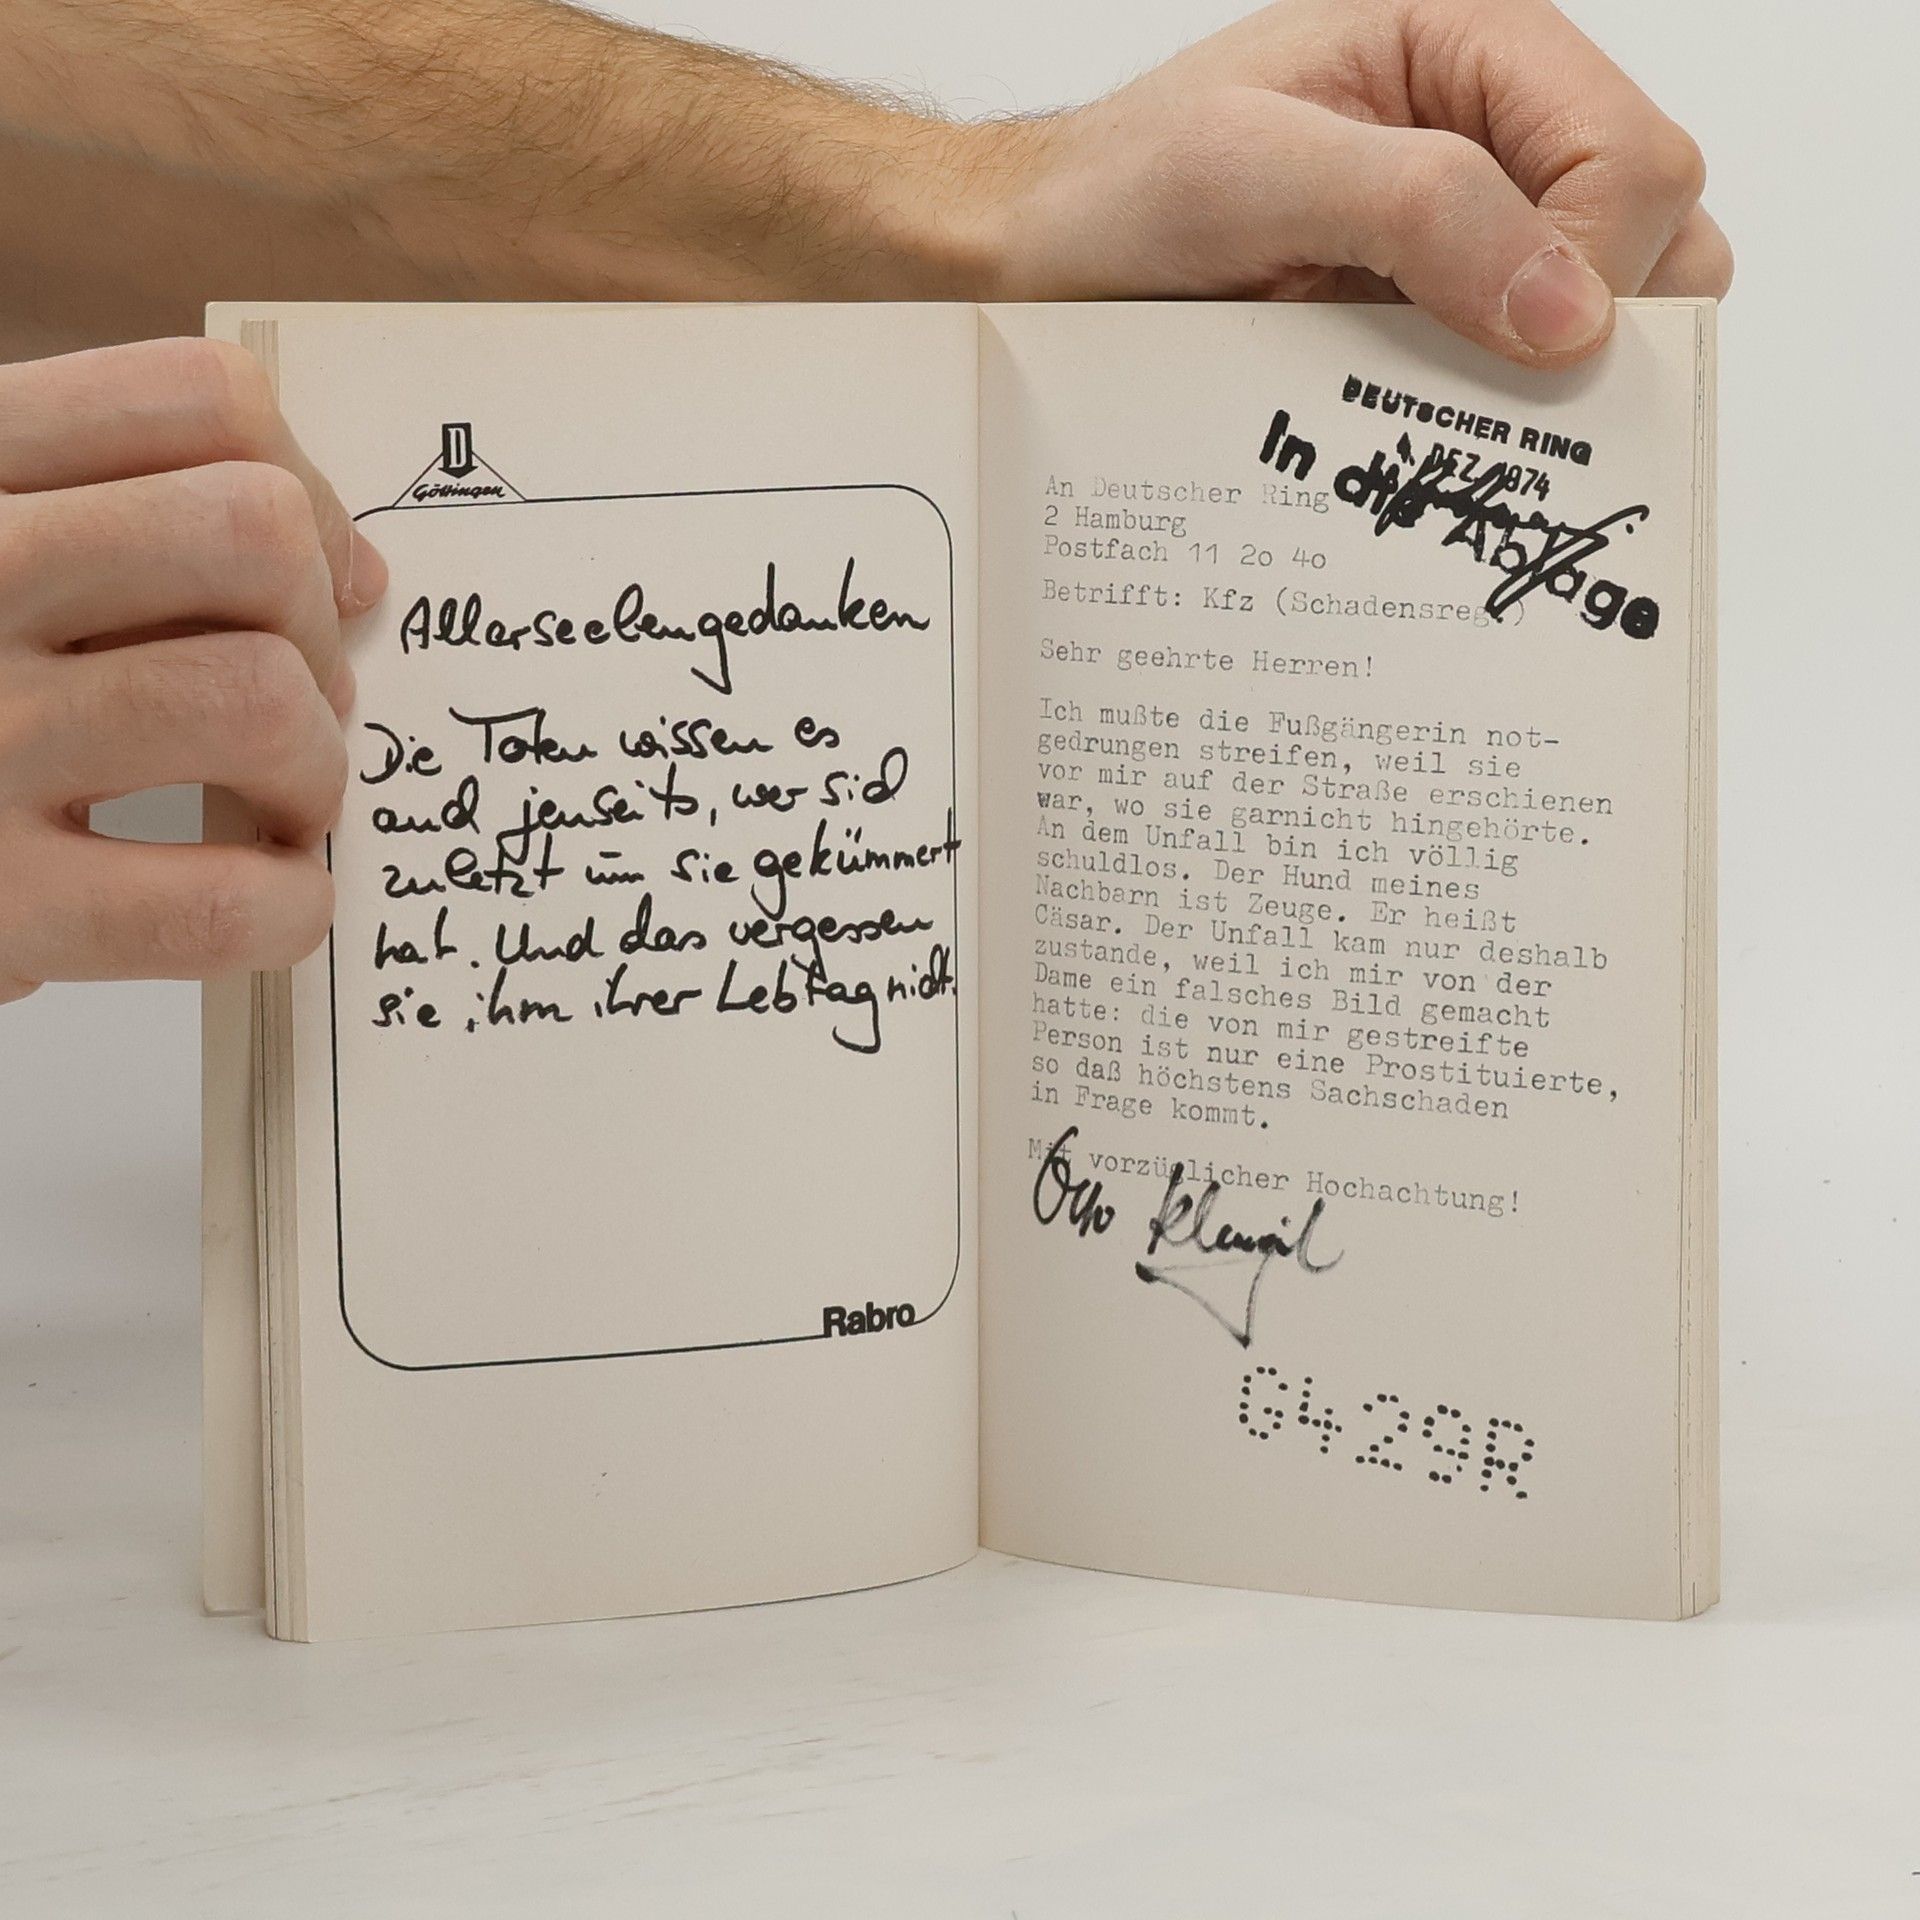 D
Göttingen
Allerseelengedanken
Die Toten wissen es
auch jenseits, wer sich
zuletzt um sie gekümmert
hat. Und das vergessen
sie ihm ihrer Lebtag nicht.
Rabro
DEUTSCHER RING
DEZ 1974
In die Ablage
An Deutscher Ring
2 Hamburg
Postfach 11 2o 4o
Betrifft: Kfz (Schadensreg.)
Sehr geehrte Herren!
Ich mußte die Fußgängerin not-
gedrungen streifen, weil sie
vor mir auf der Straße erschienen
war, wo sie garnicht hingehörte.
An dem Unfall bin ich völlig
schuldlos. Der Hund meines
Nachbarn ist Zeuge. Er heißt
Cäsar. Der Unfall kam nur deshalb
zustande, weil ich mir von der
Dame ein falsches Bild gemacht
hatte: die von mir gestreifte
Person ist nur eine Prostituierte,
so daß höchstens Sachschaden
in Frage kommt.
Mit vorzüglicher Hochachtung!
Otto
G429R